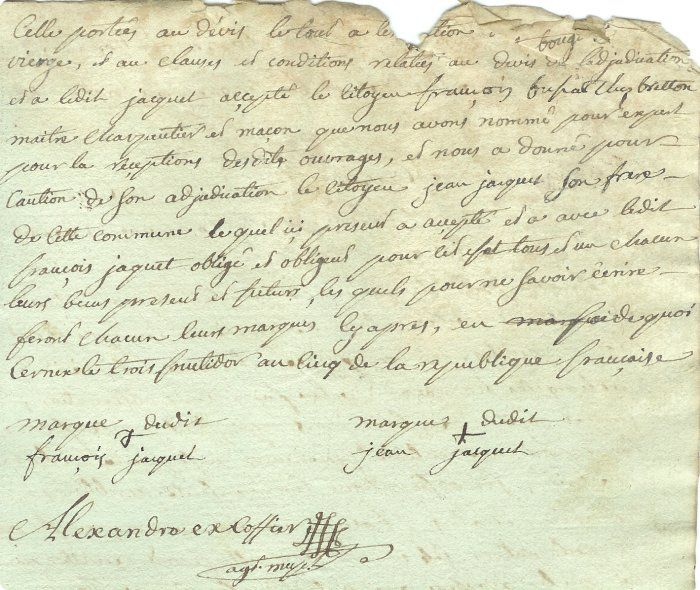 Celle portées au dévis le tout a
vierge, et au clauses et conditions relatés au devis et ladjudication
et a ledit jacquet accepté le Citoyen françois breton
maitre charpantier et macon que nous avons nommé pour expert
pour la receptions desdits ouvrages, et nous a donné pour
Caution de son adjudication le Citoyen jean jacquet son frere
de Cette commune le quel ici present a accepté et a avec ledit
françois jaquet obligé et obligent pour tous et un chacun
leurs biens present et futurs, les quels pour ne savoir écrire
feront chacun leurs marques cy apres, en de quoi
Cernex le trois fructidor an cinq de la republique française
marque dudit marque dudit
françois jacquet jean jacquet
Alexandre excoffier
agt. mup.